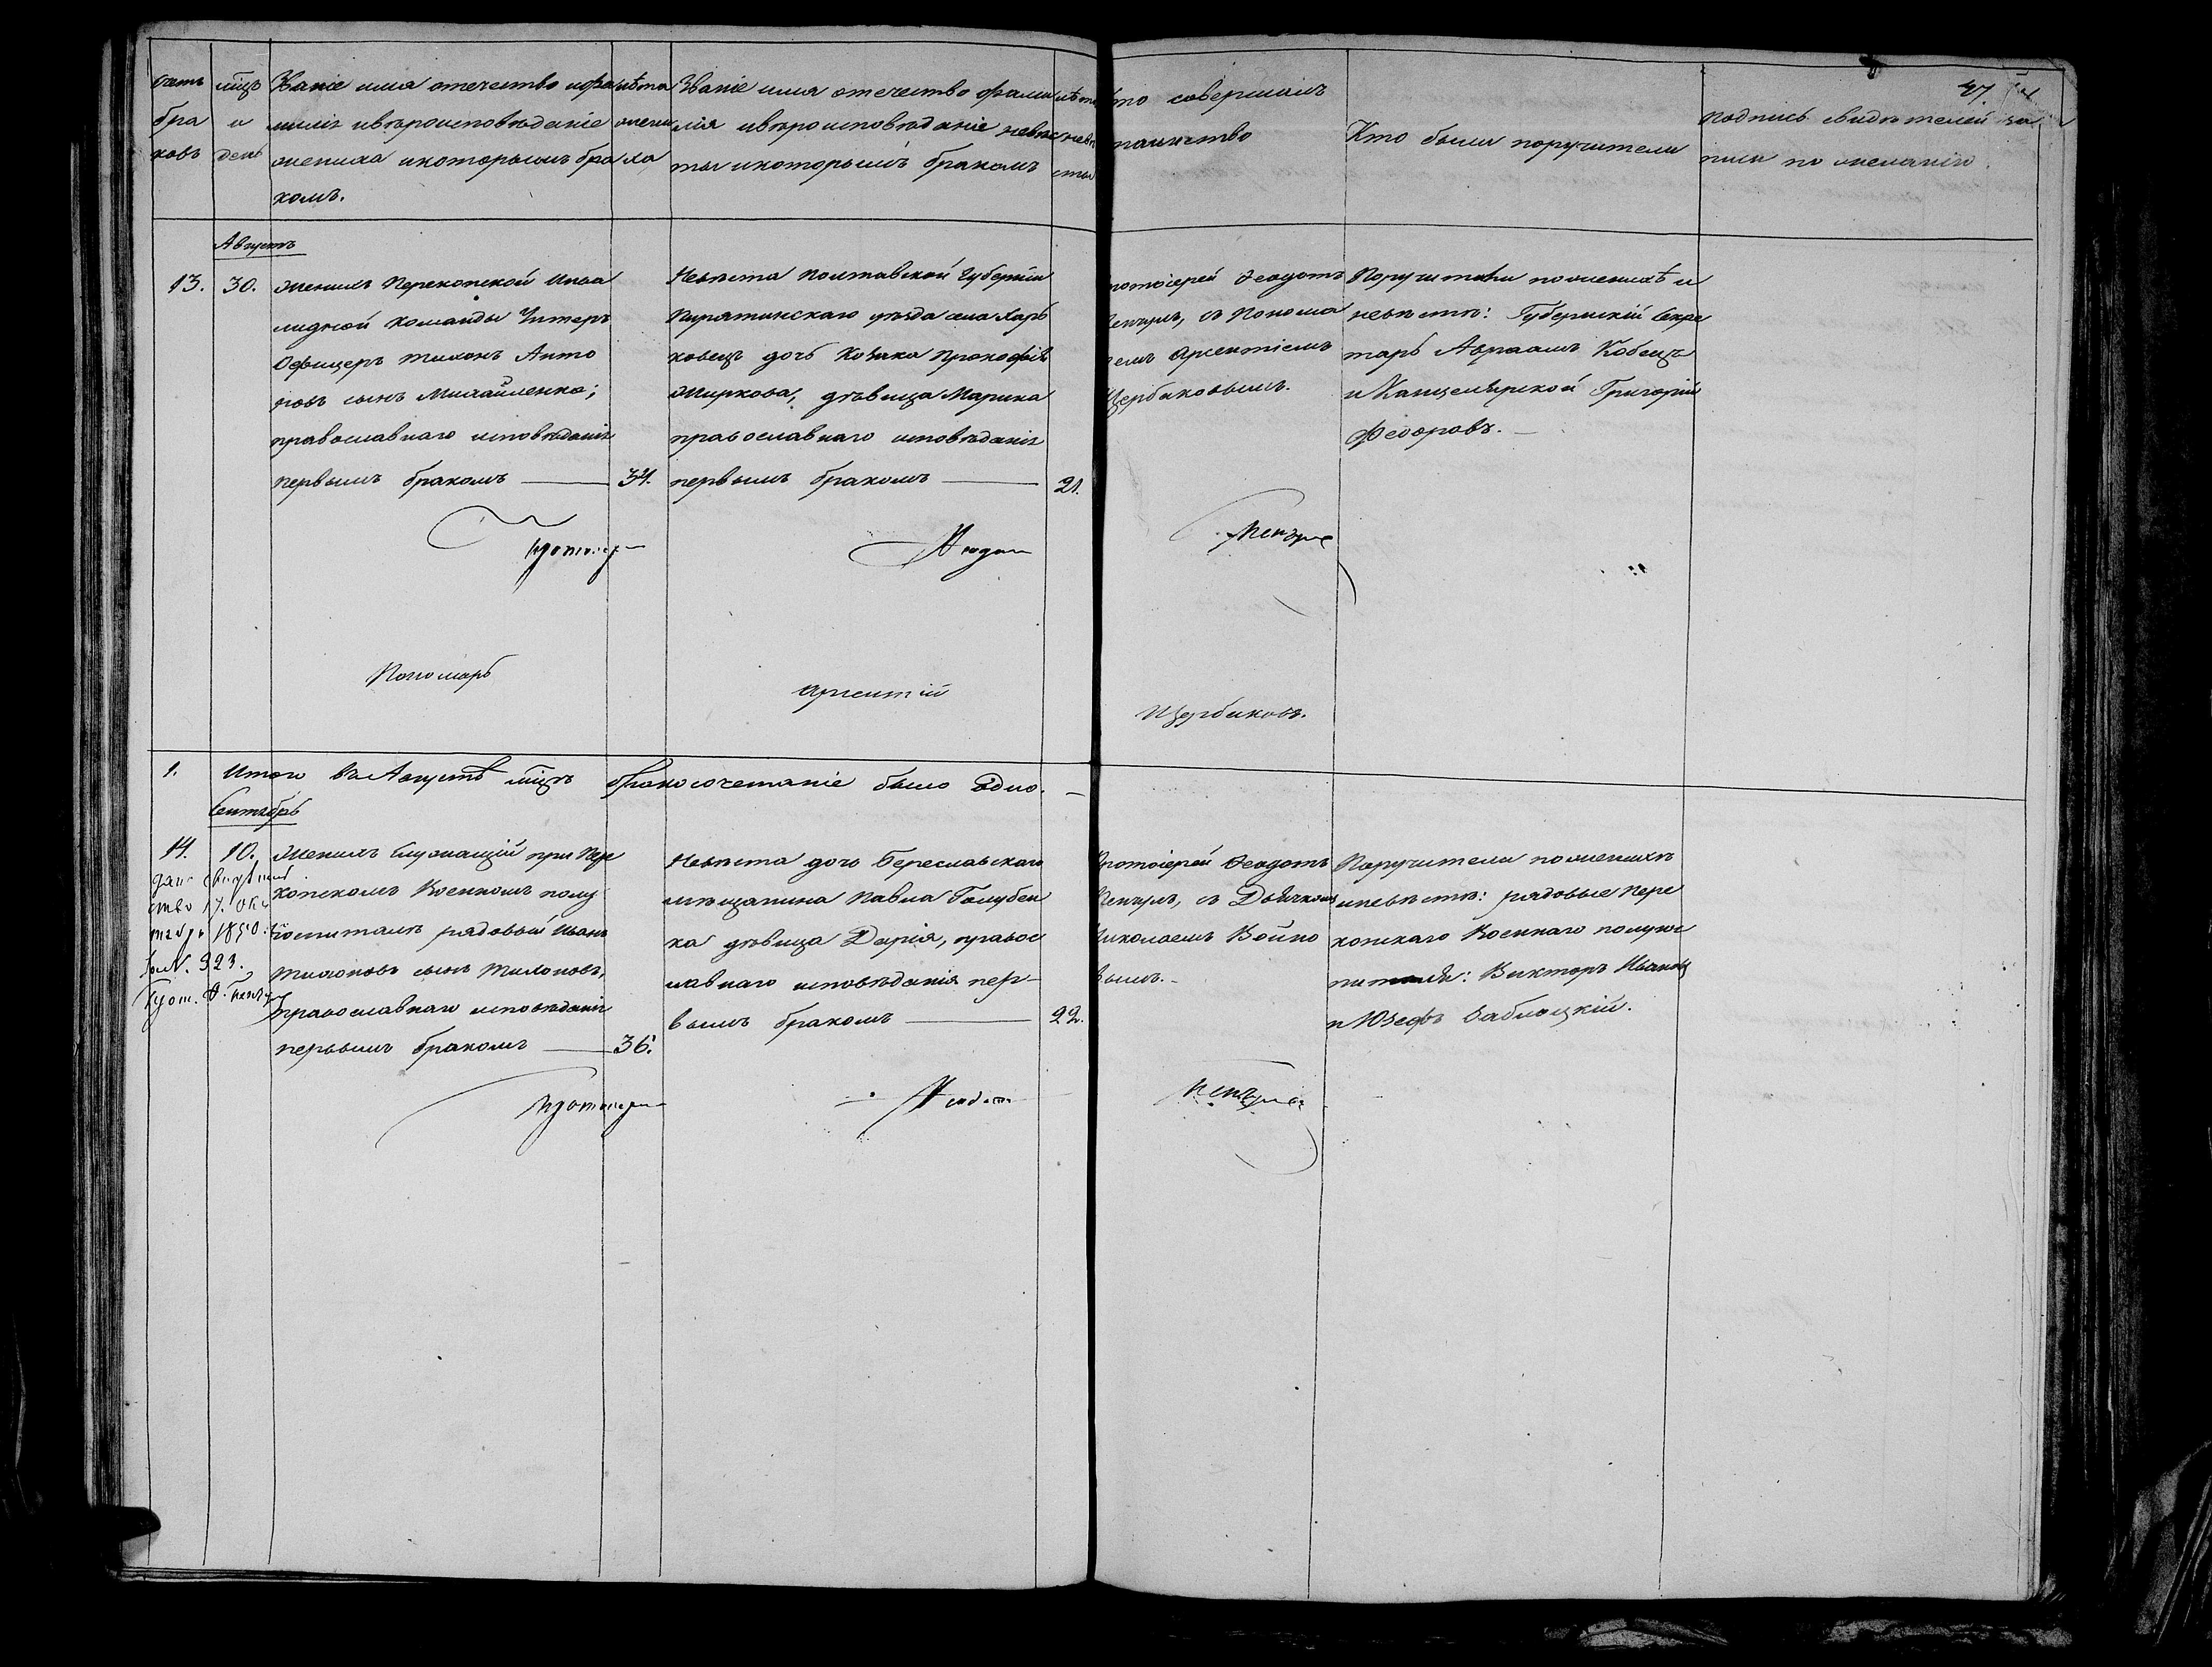 47
Счетъ
бра
ковъ
мцъ
и
день
Званіе имя отечество и фа
милія и вѣроисповѣданіе
жениха и которымъ бра
комъ.
лѣта
жени
ха
Званіе имя отечество фами
лія и вѣроисповѣданіе невѣс
ты и которымъ бракомъ
лѣта
невѣ
сты
Кто совершалъ
таинство
Кто были поручители
подпись свидѣтелей за
писи по желанію
Августъ
13.
30.
Женихъ Перекопской Инва
лидной команды Унтеръ
Офицеръ Тихонъ Анто
новъ сынъ Михайленко;
православнаго исповѣданія
первымъ бракомъ —
34.
Невѣста Полтавской Губерніи
Пирятинскаго уѣзда села Харь
ковецъ дочь Козака Прокофія
Жиркова, дѣвица Марина
православнаго исповѣданія
первымъ бракомъ —
21.
Протоіерей Феодотъ
, съ Понома
ремъ Арсентіемъ
Щербаковымъ.
Поручители по женихѣ и
невѣстѣ: Губернскій Секре
тарь Авраамъ Кобецъ
и Канцелярской Григорій
Федоровъ. —
Протоіерей
Феодотъ
Пономарь
Арсентій
Щербаковъ.
1.
Итого въ Августѣ мцѣ бракосочетаніе было Одно. —
Сентябрь
14.
10.
дано свидѣтель
ство 17. Ок
тября 1850.
за N. 323.
Прот. Ѳ.
Женихъ Служащій при Пере
копскомъ Военномъ полу
госпиталѣ рядовый Иванъ
Тихоновъ сынъ Тихоновъ,
православнаго исповѣданія
первымъ бракомъ —
36.
Невѣста дочь Бериславскаго
мѣщанина Павла Голубен
ка дѣвица Дарія, правос
лавнаго исповѣданія пер-
вымъ бракомъ —
22.
Протоіерей Феодотъ
, съ Дьячкомъ
Николаемъ Войно
вымъ. -
Поручители по женихѣ
и невѣстѣ: рядовые Пере
копскаго Военнаго полугос
питаля: Викторъ
и Юзефъ Заблоцкій.
Протоіерей
Феодотъ